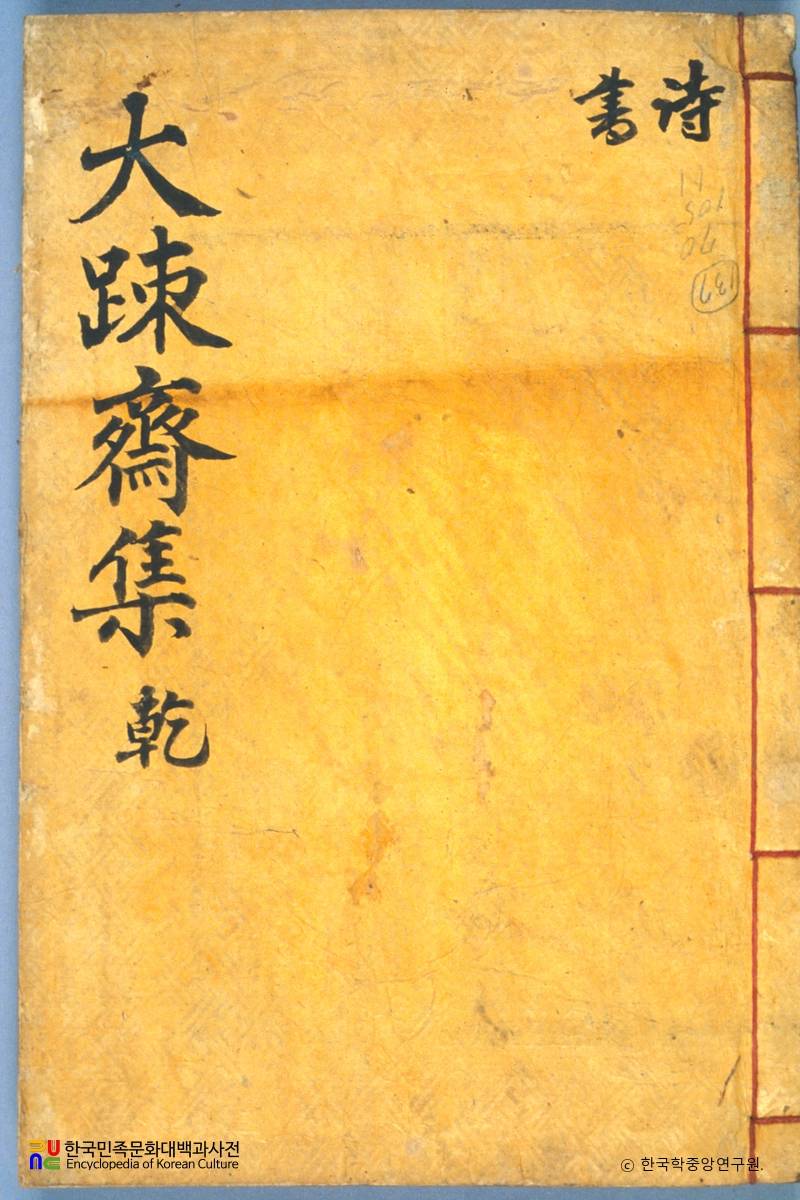 詩
書
大踈齋集 乾
137
한국민족문화대백과사전
Encyclopedia of Korean Culture
ⓒ 한국학중앙연구원.